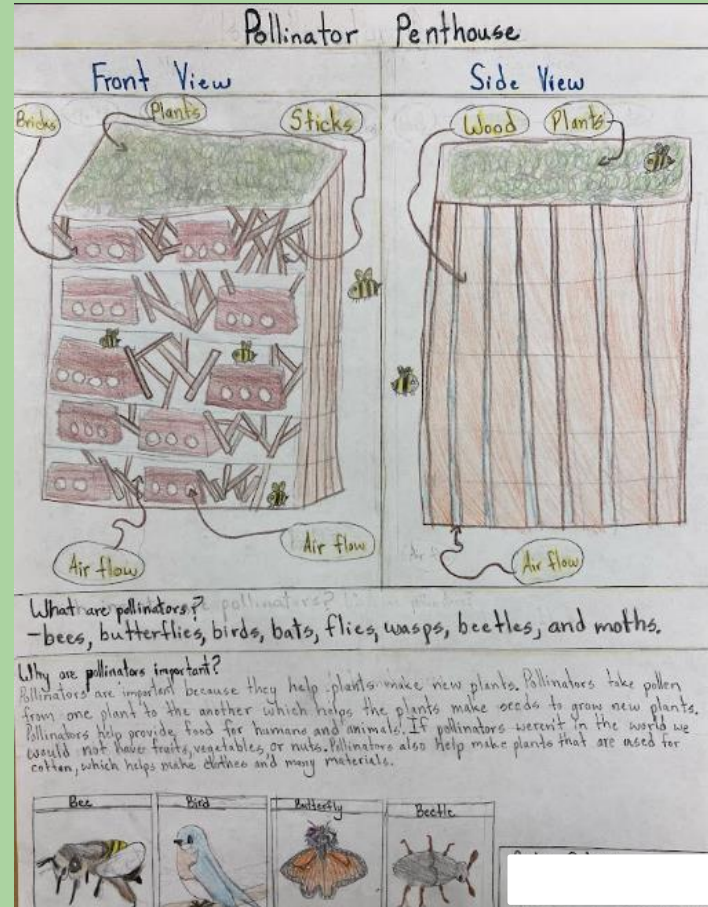 Pollinator Penthouse
Front View
Side View
Bricks
Plants
Sticks
Wood
Plants
Air flow
Air flow
Air flow
What are pollinators?
-bees, butterflies, birds, bats, flies, wasps, beetles, and moths.
Why are pollinators important?
Pollinators are important because they help plants make new plants. Pollinators take pollen
from one plant to the another which helps the plants make seeds to grow new plants.
Pollinators help provide food for humans and animals. If pollinators weren't in the world we
would not have fruits, vegetables, or nuts. Pollinators also help make plants that are used for
cotton, which helps make clothes and many materials.
Bee
Bird
Butterfly
Beetle